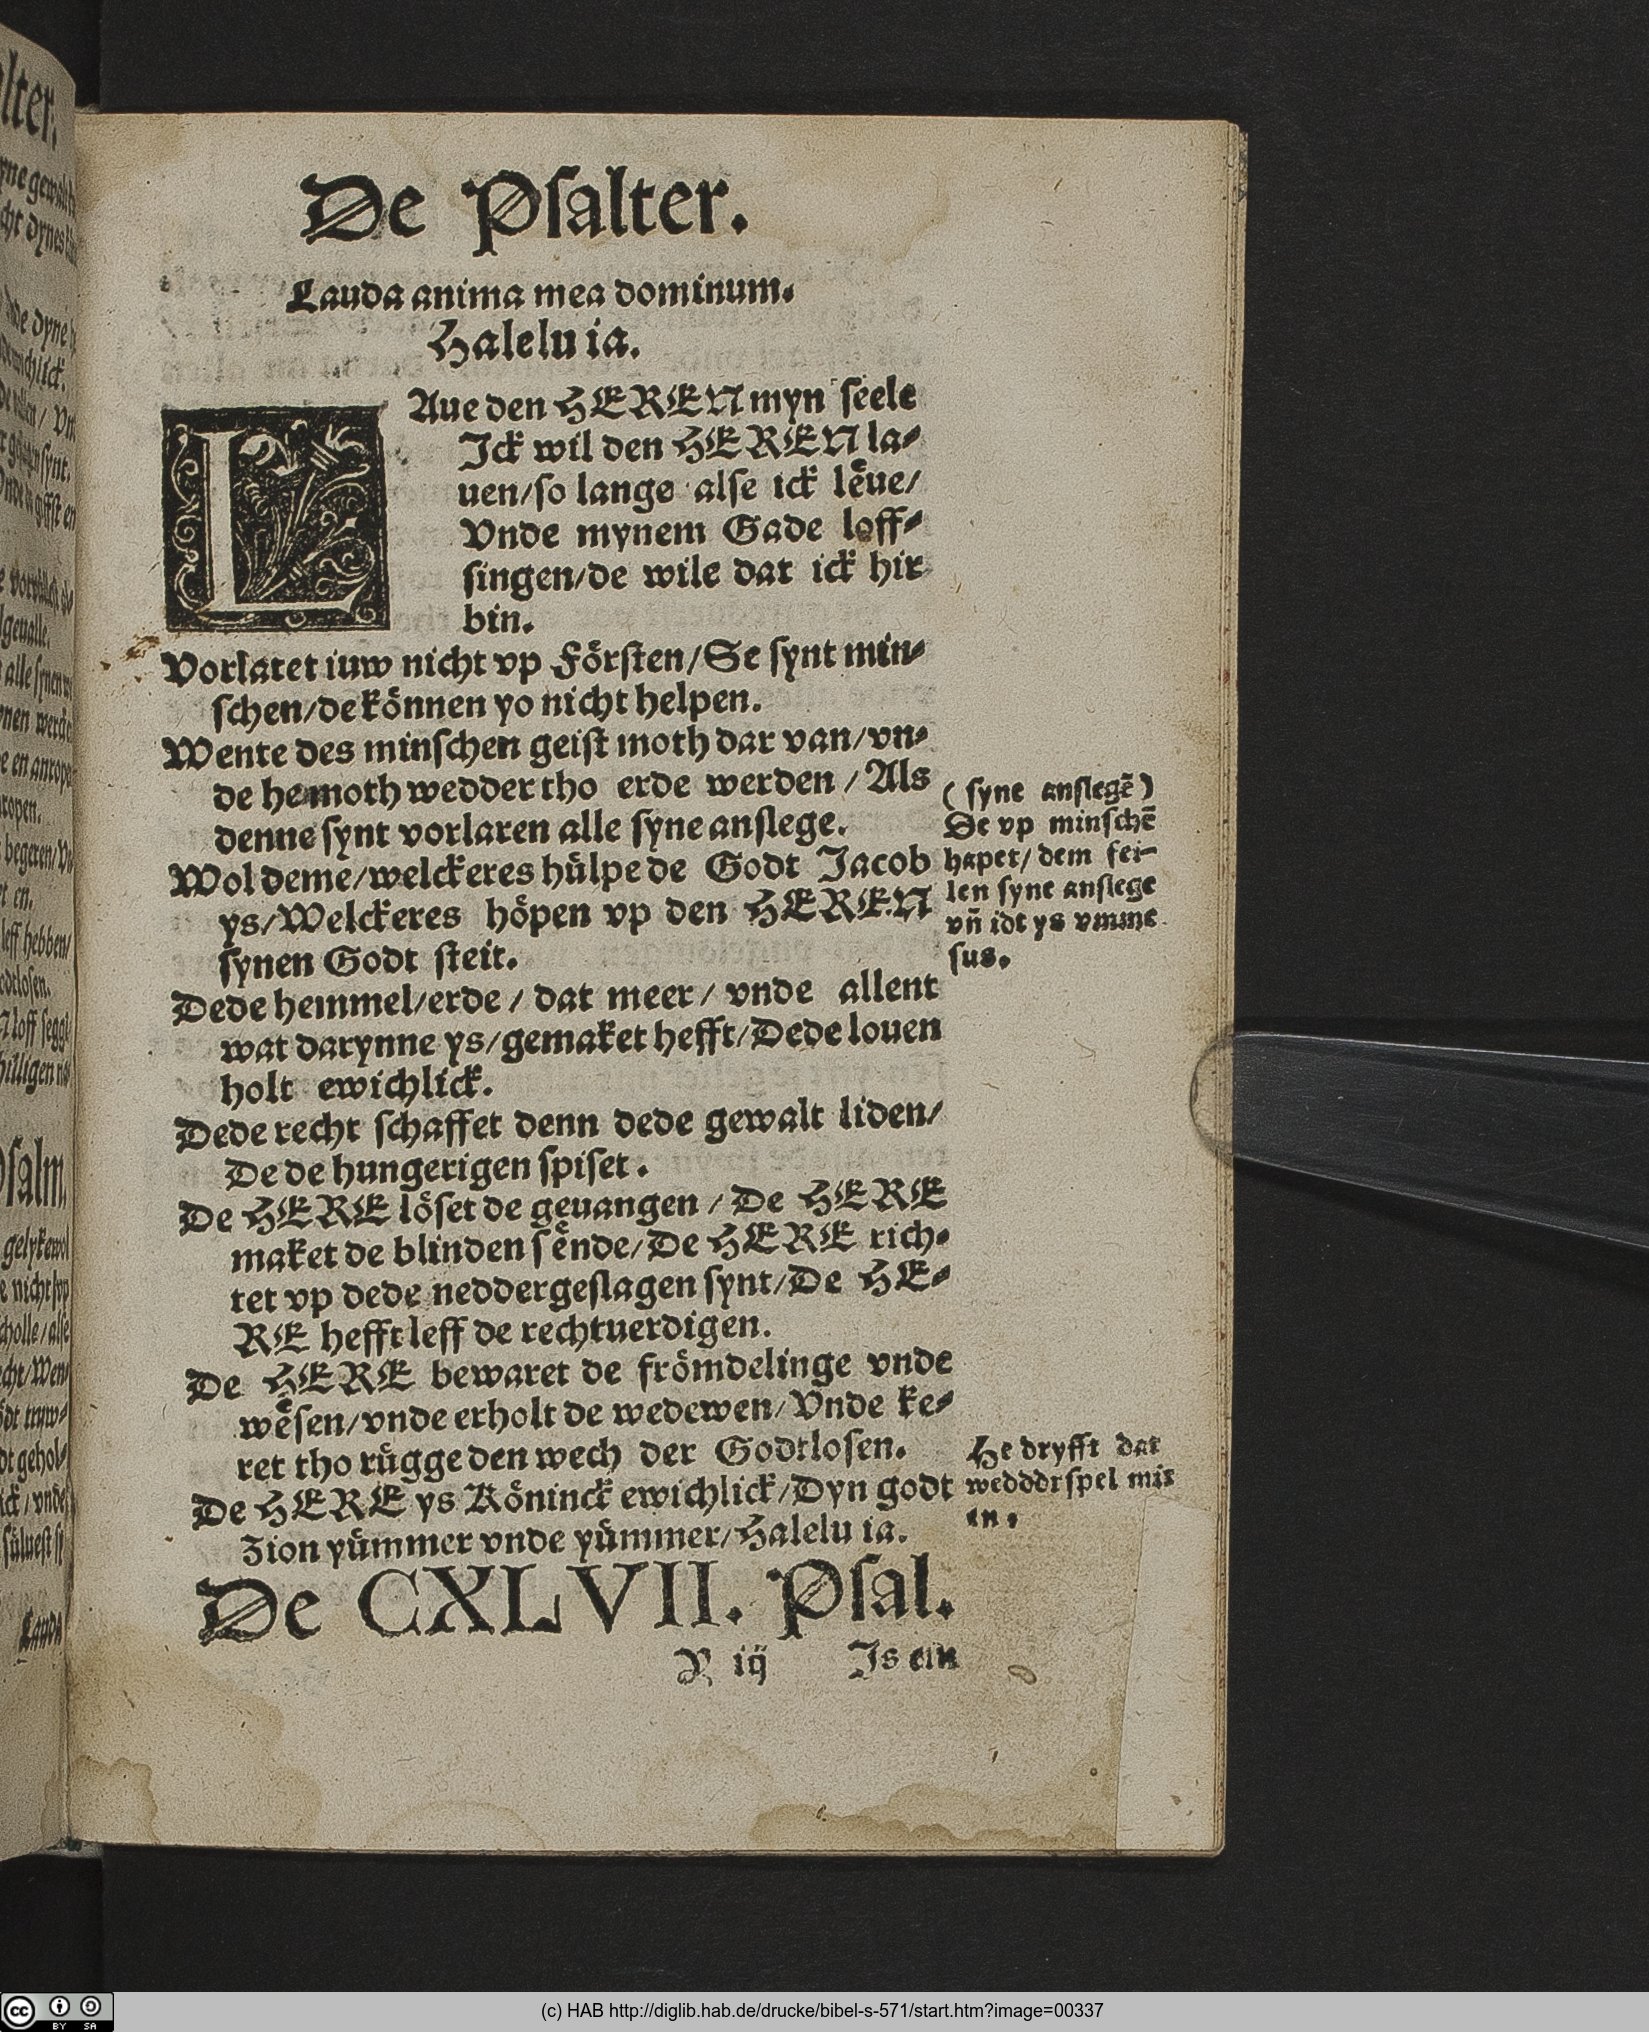 De Psalter.
Lauda anima mea dominum.
Halelu ia.
LAue den HEREN myn seele
Jck wil den HEREN la⸗
uen/so lange alse ick lēue/
Vnde mynem Gade loff⸗
singen/de wile dat ick hir
bin.
Vorlatet iuw nicht vp Försten/Se synt min⸗
schen/de können yo nicht helpen.
Wente des minschen geist moth dar van/vn⸗
de he moth wedder tho erde werden/Als
denne synt vorlaren alle syne anslege.
Wol deme/welckeres hülpe de Godt Jacob
ys/Welckeres höpen vp den HEREN
synen Godt steit.
Dede hemmel/erde/dat meer/vnde allent
wat darynne ys/gemaket hefft/Dede louen
holt ewichlick.
Dede recht schaffet denn dede gewalt liden/
De de hungerigen spiset.
De HERE löset de geuangen/De HERE
maket de blinden sēnde/De HERE rich⸗
tet vp dede neddergeslagen synt/De HE⸗
RE hefft leff de rechtuerdigen.
De HERE bewaret de frömdelinge vnde
wēsen/vnde erholt de wedewen/Vnde ke⸗
ret tho rügge den wech der Godtlosen.
De HERE ys Köninck ewichlick/Dyn godt
Zion yümmer vnde yümmer/Halelu ia.
(syne anslegē)
De vp minschē
hapet/dem fei⸗
len syne anslege
vñ idt ys vmme
sus.
He dryfft dat
wedddrspel mit
en.
De CXLVII. Psal.
R iij Js ein
(c) HAB http://diglib.hab.de/drucke/bibel-s-571/start.htm?image=00337
cc BY SA